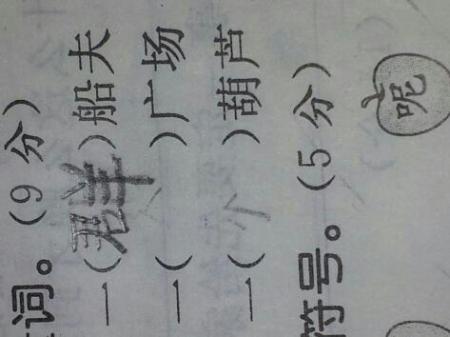 词。(9分)
一(群)船夫
一( )广场
一(个)葫芦
符号。(5分)
呢